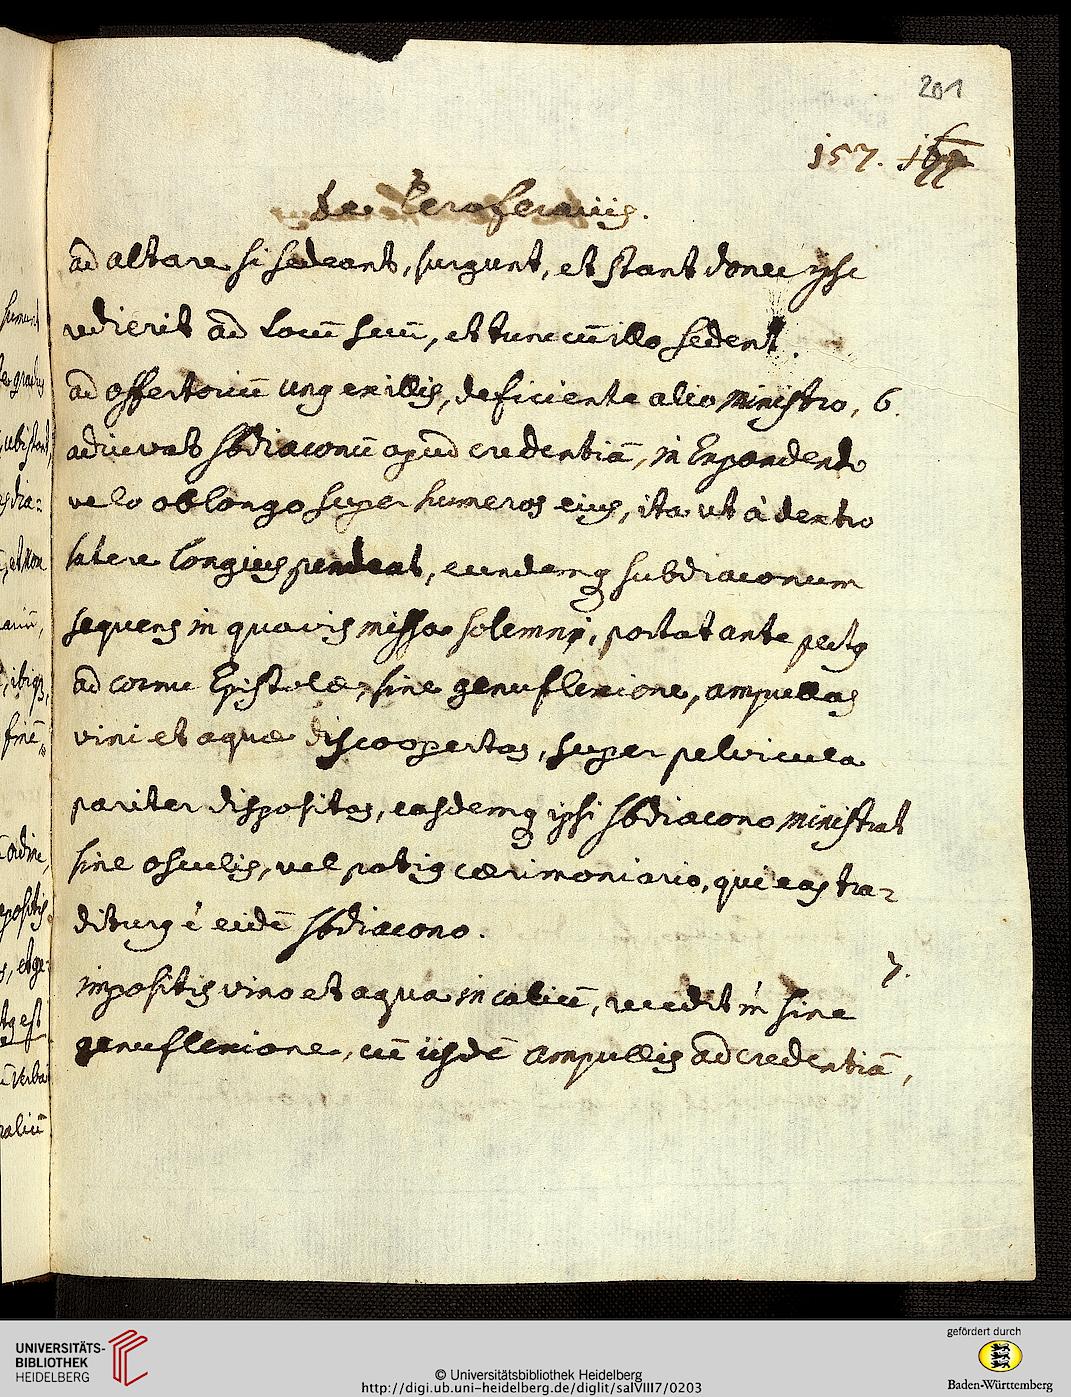 201
157.
De Ceroferariis.
ad altare si sedeant, surgunt, et stant donec ipse
redierit ad locū suū, et tunc cū illo sedent.
ad offertoriū unꝰ ex illis, deficiente alio ministro, 6.
adiuvat sbdiaconū apud credentiā, in expandendo
velo oblongo super humeros eiꝰ, ita ut à dextro
latere longiꝰ pendeat, eundemq subdiaconum
sequens in quavis missa solemni, portat ante pectꝰ
ad cornu Epistolæ, sine genuflexione, ampullas
vini et aquæ discoopertas, super pelvicula
pariter dispositas, easdemq ipsi sbdiacono ministrat
sine osculis, vel potiꝰ cærimoniario, qui eas tra-
diturꝰ ē eidē sbdiacono.
7.
impositis vino et aqua in calicē, recedit in sine
genuflexione, cū iisdē ampullis ad credentiā,
UNIVERSITÄTS-
BIBLIOTHEK
HEIDELBERG
© Universitätsbibliothek Heidelberg
http://digi.ub.uni-heidelberg.de/diglit/salVIII7/0203
gefördert durch
Baden-Württemberg